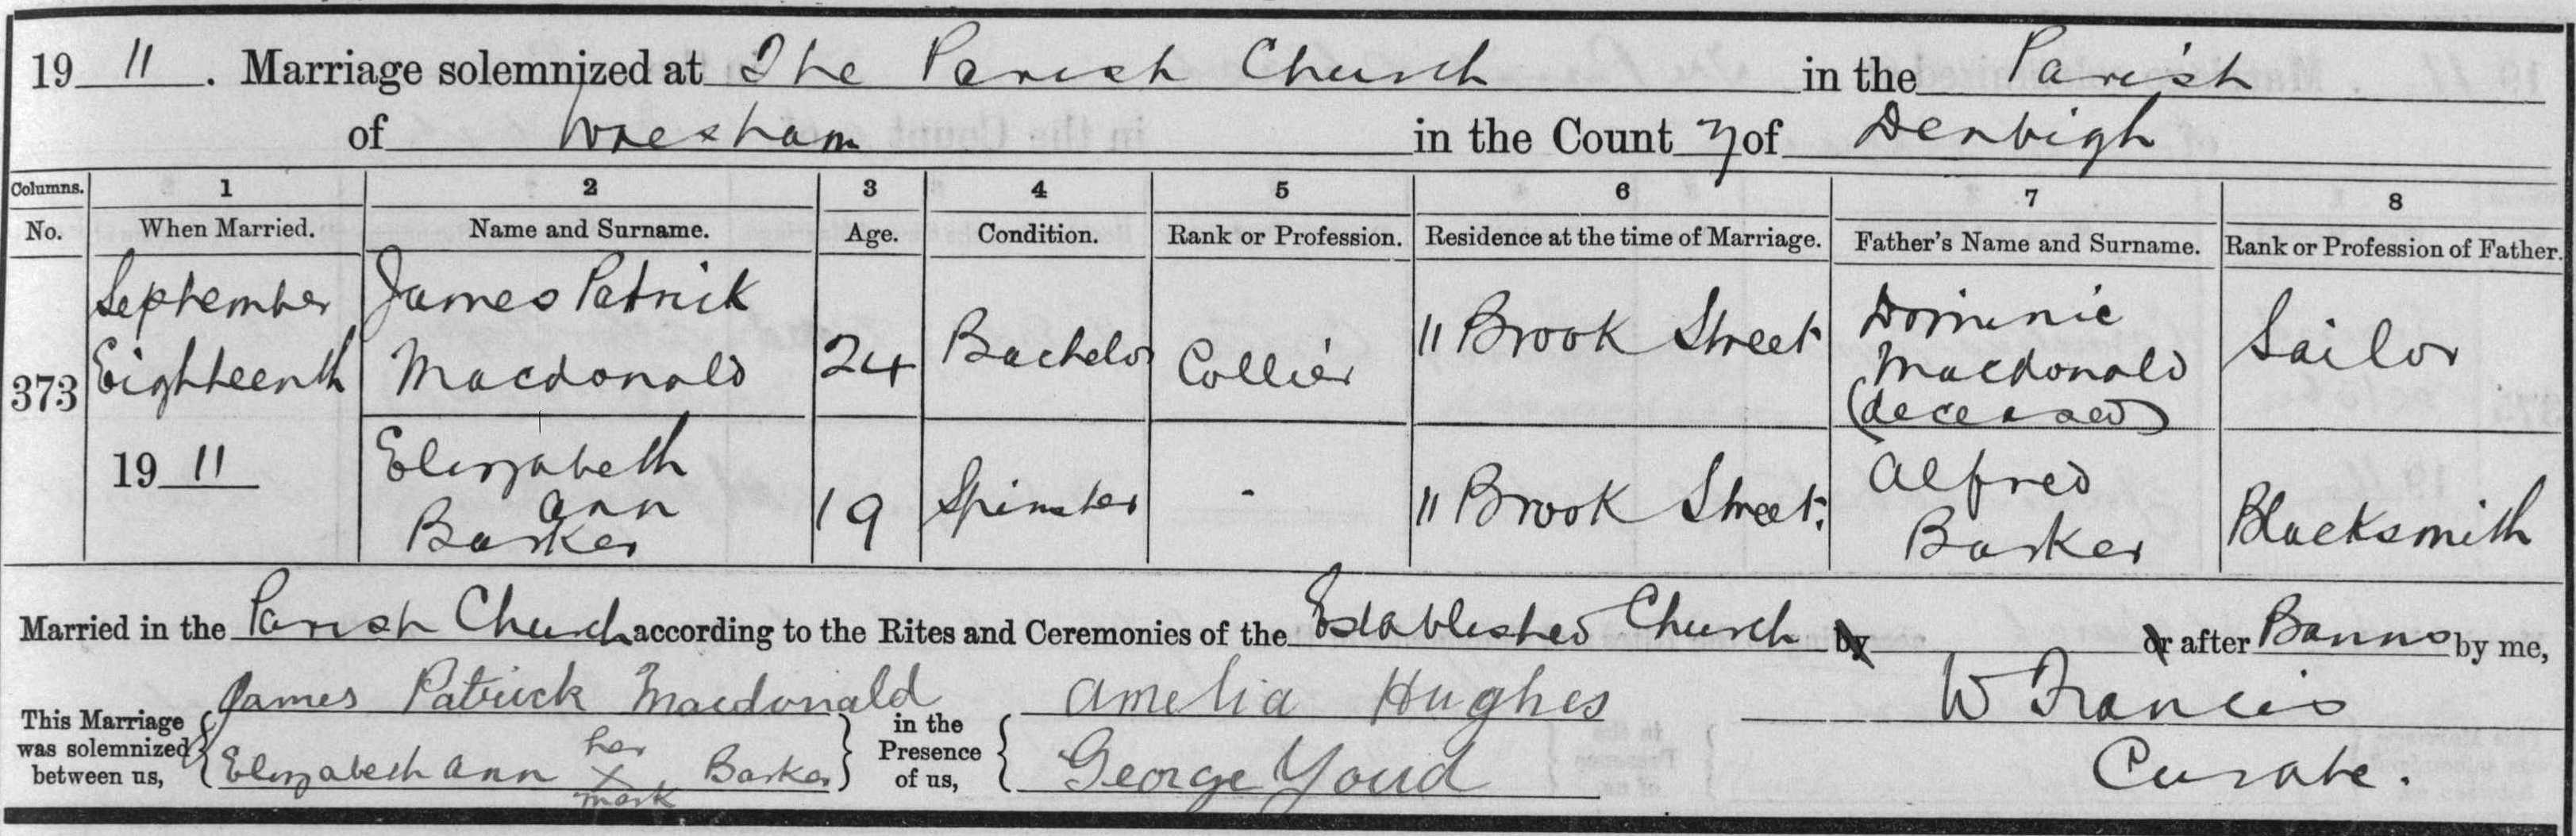 19 11. Marriage solemnized at The Parish Church in the Parish
of Wrexham in the County of Denbigh
Columns. 1 2 3 4 5 6 7 8
No. When Married. Name and Surname. Age. Condition. Rank or Profession. Residence at the time of Marriage. Father's Name and Surname. Rank or Profession of Father.
373 September Eighteenth 19 11
James Patrick Macdonald 24 Bachelor Collier 11 Brook Street Dominic Macdonald (deceased) Sailor
Elizabeth Ann Barker 19 Spinster - 11 Brook Street. Alfred Barker Blacksmith
Married in the Parish Church according to the Rites and Ceremonies of the Established Church by or after Banns by me,
This Marriage was solemnized between us, James Patrick Macdonald
Elizabeth Ann her X mark Barker
in the Presence of us, Amelia Hughes
George Youd
W Francis
Curate.